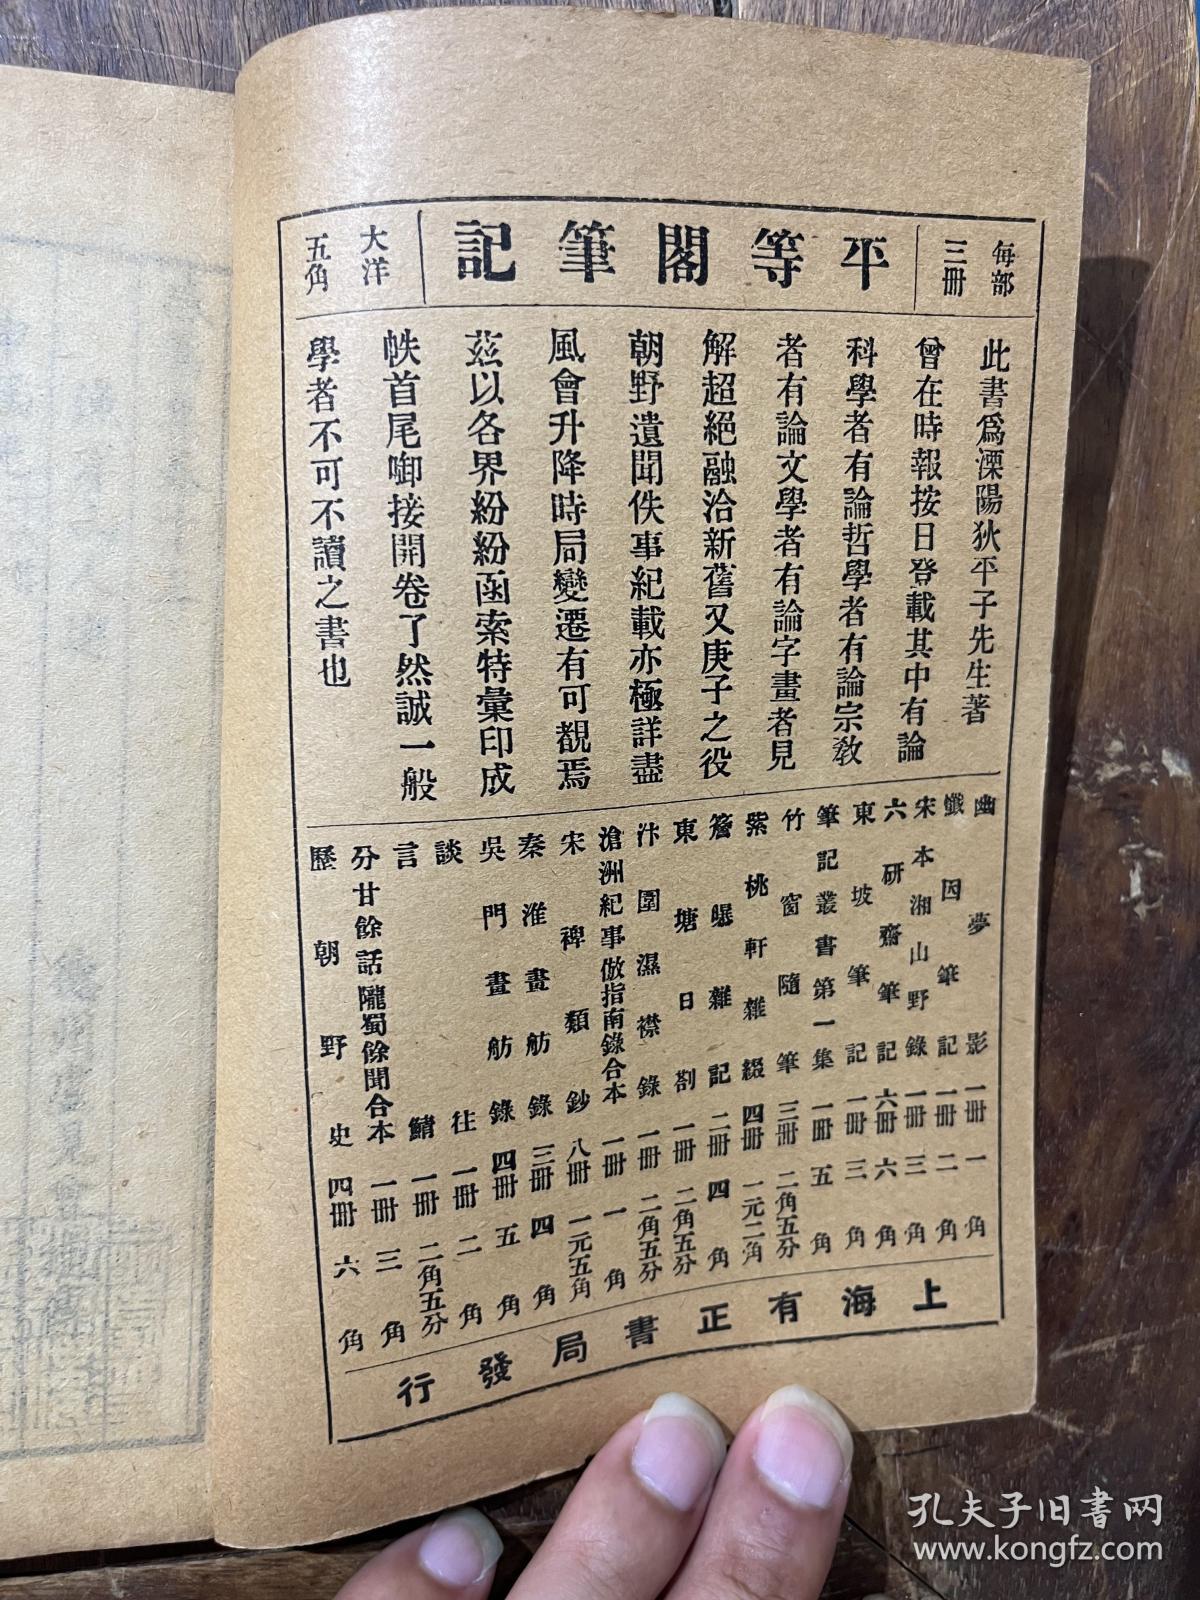 每部三冊
平等閣筆記
大洋五角
此書爲溧陽狄平子先生著
曾在時報按日登載其中有論
科學者有論哲學者有論宗教
者有論文學者有論字畫者見
解超絕融洽新舊又庚子之役
朝野遺聞佚事紀載亦極詳盡
風會升降時局變遷有可覩焉
茲以各界紛紛函索特彙印成
帙首尾啣接開卷了然誠一般
學者不可不讀之書也
幽夢影 一冊 一角
懺因筆記 一冊 二角
宋本湘山野錄 一冊 三角
六研齋筆記 六冊 六角
東坡筆記 一冊 三角
筆記叢書第一集 一冊 五角
竹窗隨筆 三冊 二角五分
紫桃軒雜綴 四冊 一元二角
簷曝雜記 二冊 四角
東塘日劄 一冊 二角五分
汴圍濕襟錄 一冊 二角五分
滄洲紀事倣指南錄合本 一冊 一角
宋稗類鈔 八冊 一元五角
秦淮畫舫錄 三冊 四角
吳門畫舫錄 四冊 五角
談往 一冊 二角
言鯖 一冊 二角五分
分甘餘話隴蜀餘聞合本 一冊 三角
歷朝野史 四冊 六角
上海有正書局發行
孔夫子旧书网
www.kongfz.com